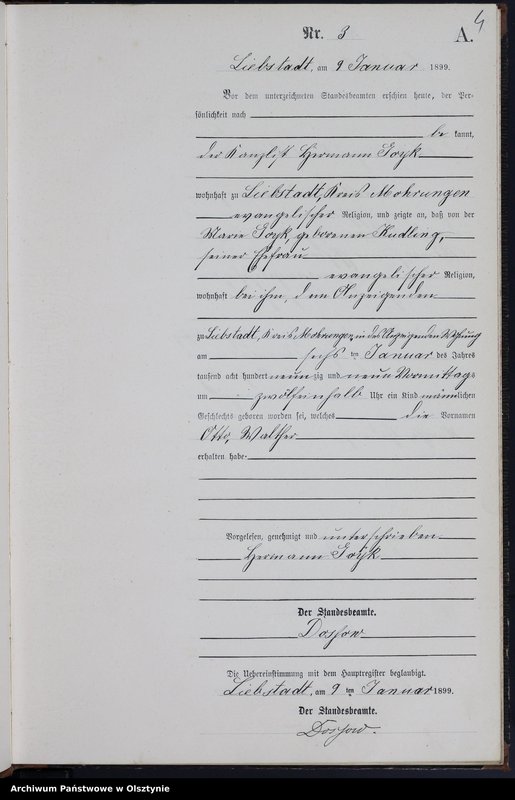 4
Nr. 3
A.
Liebstadt, am 9 Januar 1899.
Vor dem unterzeichneten Standesbeamten erschien heute, der Per-
sönlichkeit nach
be kannt,
der Kanzlist Hermann Goyk
wohnhaft zu Liebstadt, Kreis Mohrungen
evangelischer Religion, und zeigte an, daß von der
Marie Goyk, geborenen Kudling,
seiner Ehefrau
evangelischer Religion,
wohnhaft bei ihm, dem Anzeigenden
zu Liebstadt, Kreis Mohrungen, in des Anzeigenden Wohnung
am sechs ten Januar des Jahres
tausend acht hundert neun zig und neun Vormittags
um zwölfeinhalb Uhr ein Kind männlichen
Geschlechts geboren worden sei, welches die Vornamen
Otto, Walther
erhalten habe
Vorgelesen, genehmigt und unterschrieben
Hermann Goyk
Der Standesbeamte.
Dossow
Die Uebereinstimmung mit dem Hauptregister beglaubigt.
Liebstadt, am 9 ten Januar 1899.
Der Standesbeamte.
Dossow.
Archiwum Państwowe w Olsztynie